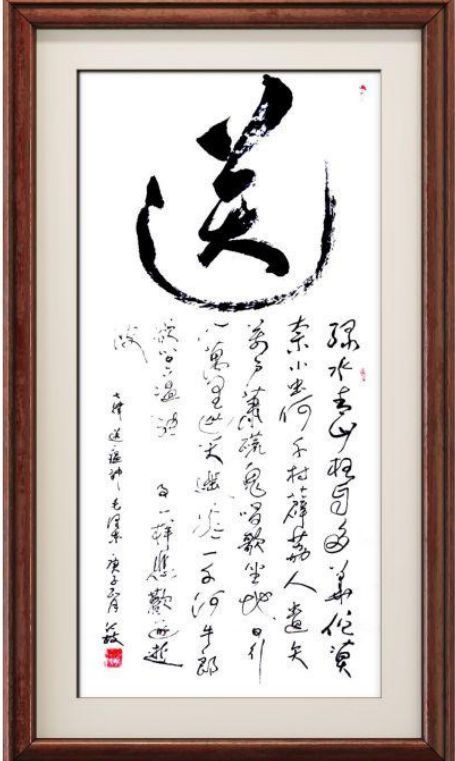 送
绿水青山枉自多華佗無
奈小虫何千村薜荔人遗矢
萬户蕭疏鬼唱歌坐地日行
八萬里巡天遥看一千河牛郎
欲问瘟神事一样悲歡逐逝
波
七律送瘟神毛泽东庚子月